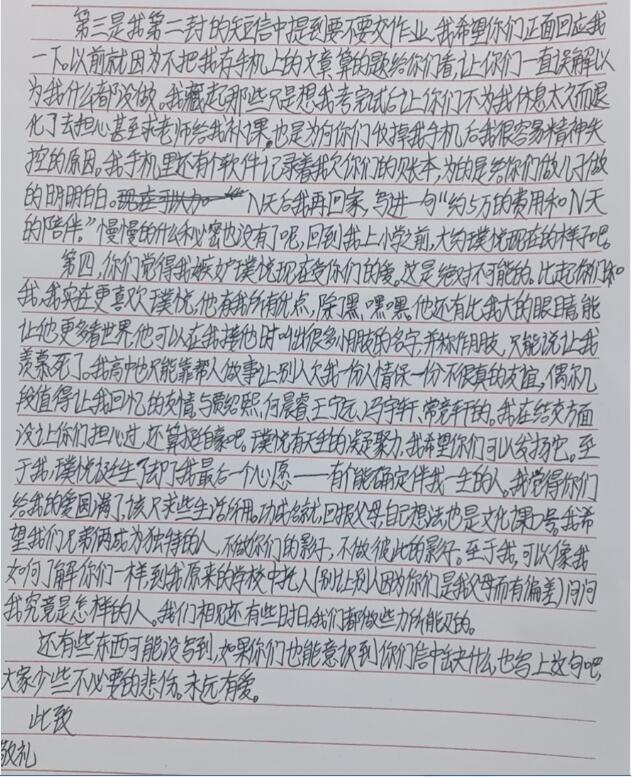 第三是我第二封的短信中提到要不要交作业,我希望你们正面回应我
一下。以前就因为不把我存手机上的文章,算的题给你们看,让你们一直误解以
为我什么都没做。我藏起那些只是想我考完试后让你们不为我休息太久而退
化了去担心甚至求老师给我补课。也是为何你们收掉我手机后我很容易精神失
控的原因。我手机里还有个软件记录着我欠你们的账本,为的是给你们做儿子做
的明明白白。N天后我再回家,写进一句“约5万的费用和N天
的陪伴。”慢慢的什么秘密也没有了吧,回到我上小学之前,大约璞悦现在的样子吧。
第四,你们觉得我嫉妒璞悦现在受你们的爱。这是绝对不可能的。比起你们和
我,我实在更喜欢璞悦,他有我所有优点,除了黑,嘿嘿。他还有比我大的眼睛,能
让他更多看世界,他可以在我接他时叫出很多小朋友的名字,并称作朋友,只能说让我
羡慕死了。我高中也只能靠帮人做事让别人欠我一份人情保一份不很真的友谊,偶尔几
段值得让我回忆的友情与贾绍熙,何晨睿,王宁元,冯宇轩,常竞轩的。我在结交方面
没让你们担心过,还算挺自豪吧。璞悦有天生的凝聚力,我希望你们可以发扬它。至
于我,璞悦诞生了却了我最后一个心愿——有个能确定伴我一生的人。我觉得你们
给我的爱圆满了,该只求些生活所用,功成名就,回报父母,自己想法也是文化课口号。我希
望我们兄弟俩成为独特的人,不做你们的影子,不做彼此的影子。至于我,可以像我
如何了解你们一样,到我原来的学校中托人(别让别人因为你们是我父母而有偏差)问问
我究竟是怎样的人。我们相见还有些时日,我们都做些力所能及的。
还有些东西可能没写到,如果你们也能意识到你们信中缺什么,也写上数句吧,
大家少些不必要的悲伤。永远有爱。
此致
敬礼